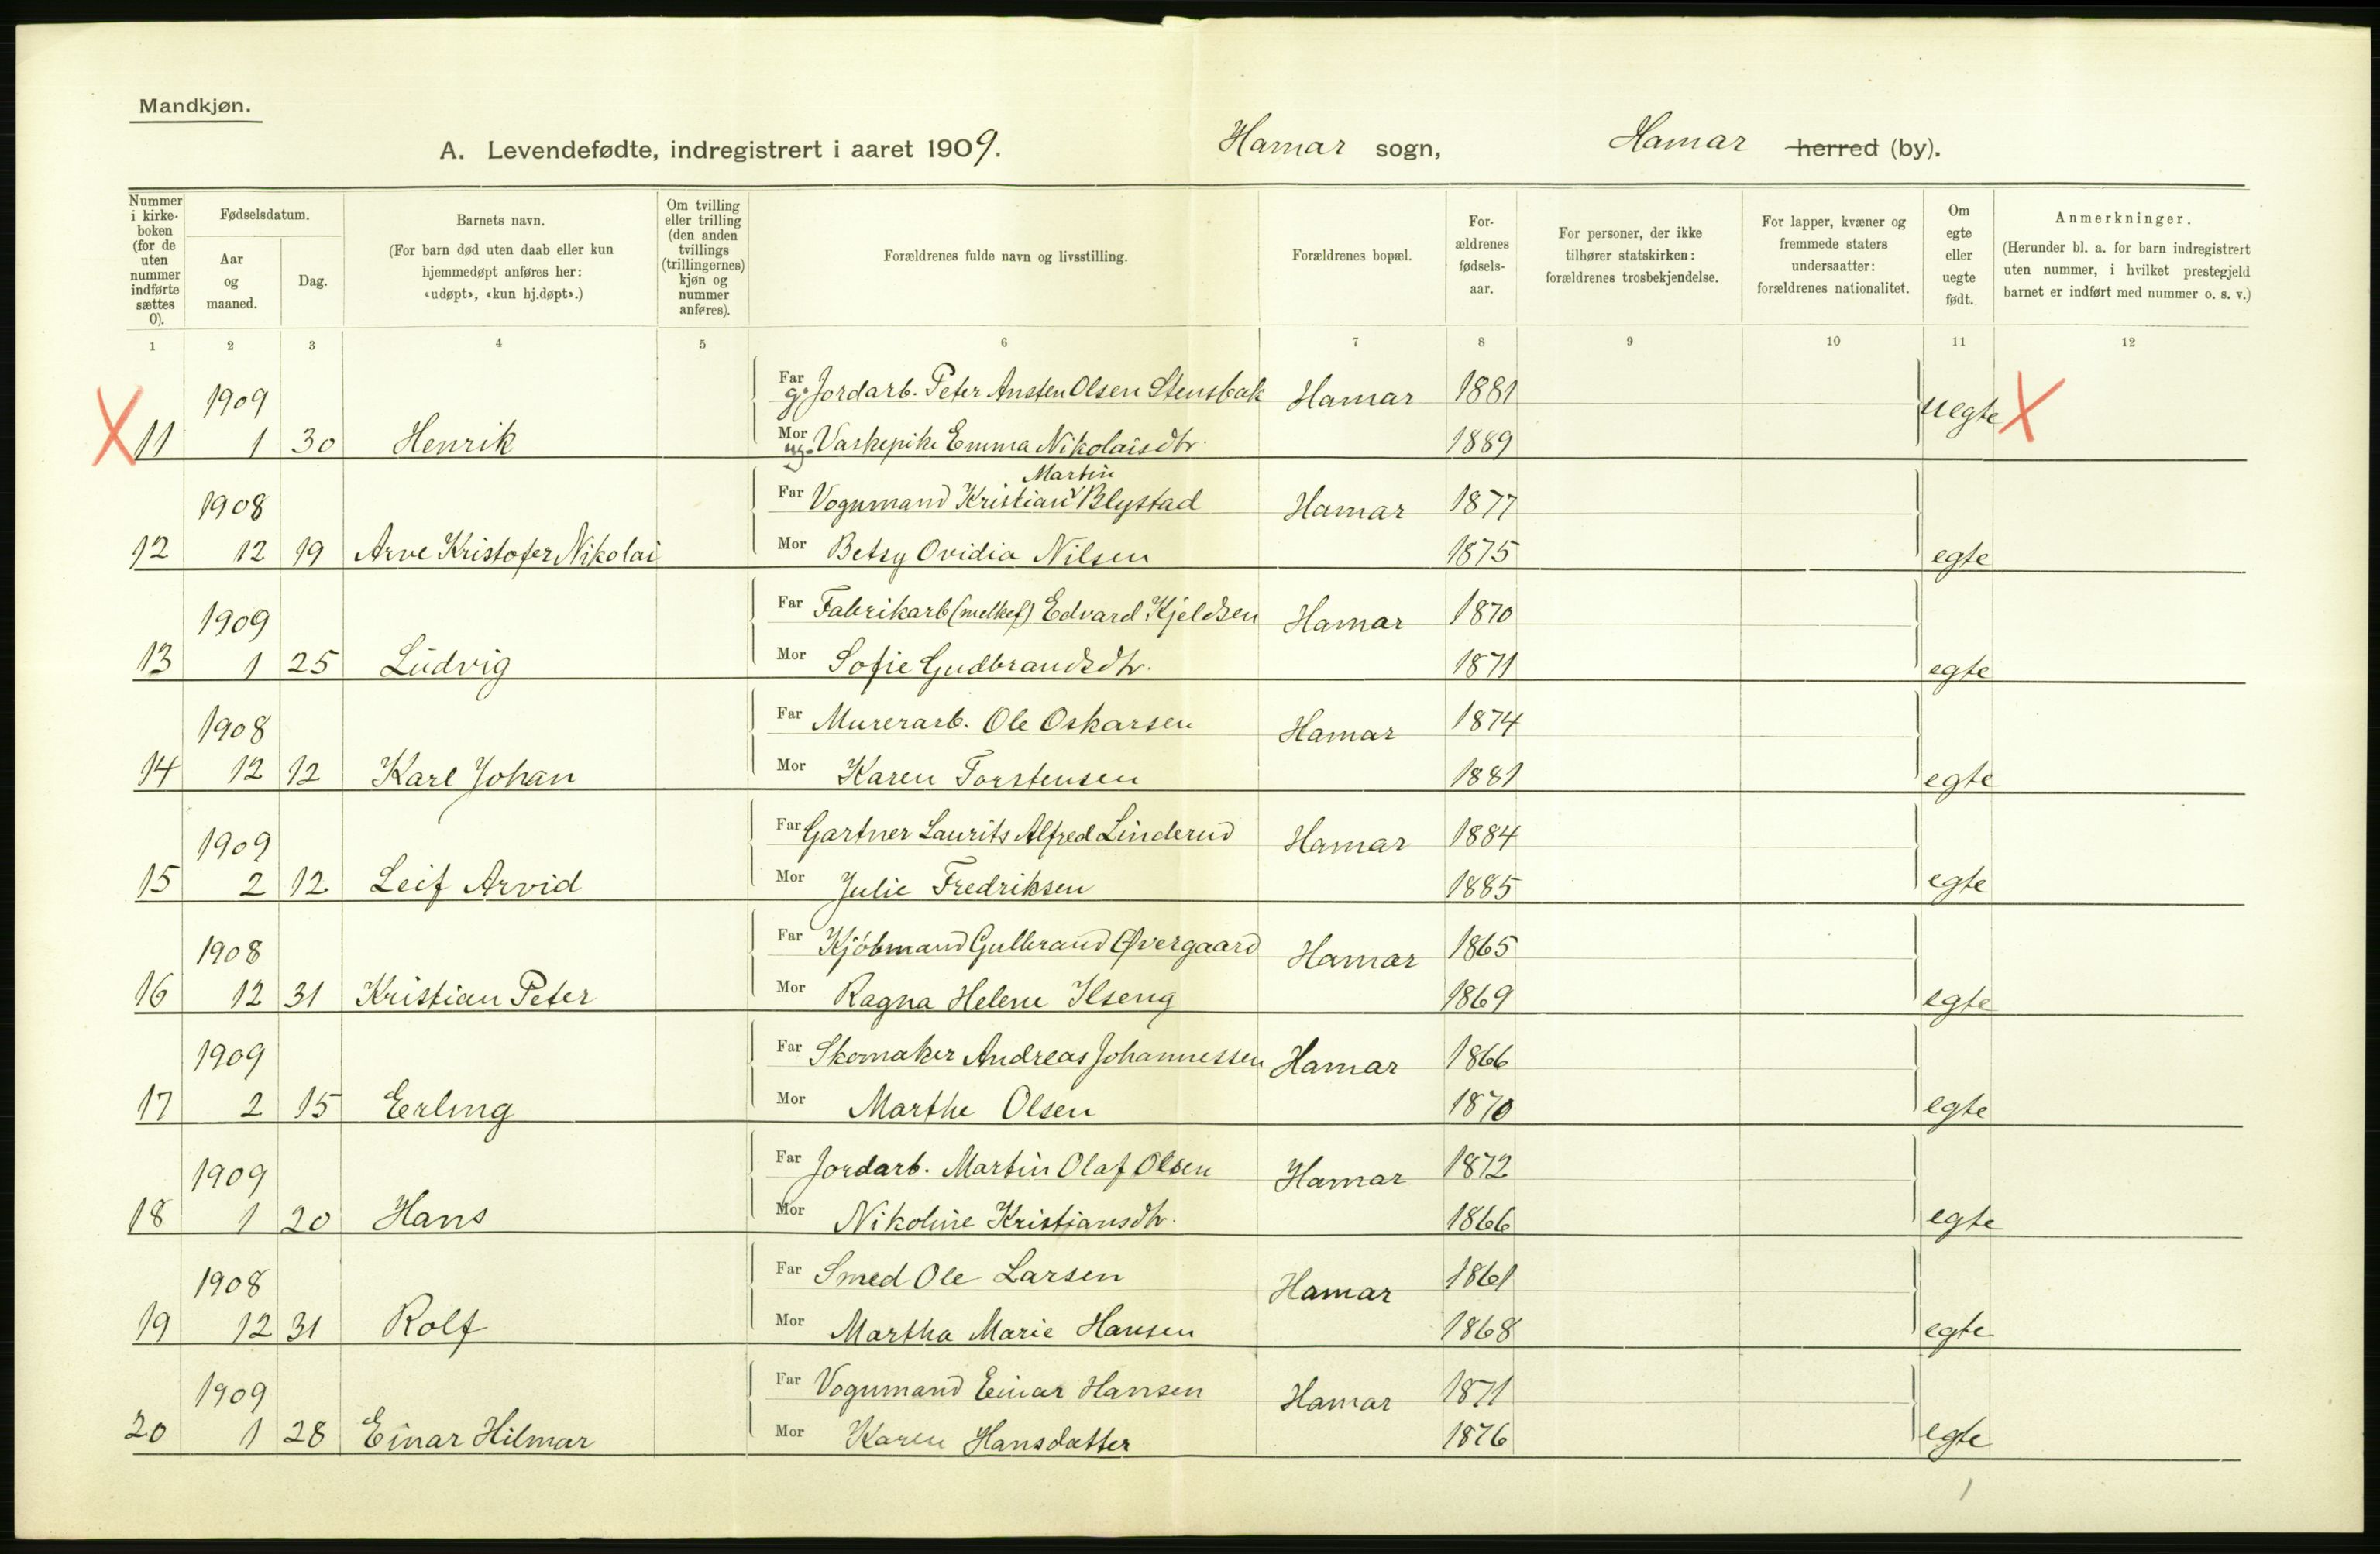 Mandkjøn.
A. Levendefødte, indregistrert i aaret 1909. Hamar sogn, Hamar herred (by).
Nummer i kirke-boken (for de uten nummer indførte sættes 0).
Fødselsdatum.
Aar og maaned.
Dag.
Barnets navn.
(For barn død uten daab eller kun hjemmedøpt anføres her: «udøpt», «kun hj.døpt».)
Om tvilling eller trilling (den anden tvillings (trillingernes) kjøn og nummer anføres).
Forældrenes fulde navn og livsstilling.
Forældrenes bopæl.
For-ældrenes fødsels-aar.
For personer, der ikke tilhører statskirken: forældrenes trosbekjendelse.
For lapper, kvæner og fremmede staters undersaatter: forældrenes nationalitet.
Om egte eller uegte født.
Anmerkninger.
(Herunder bl. a. for barn indregistrert uten nummer, i hvilket prestegjeld barnet er indført med nummer o. s. v.)
1 2 3 4 5 6 7 8 9 10 11 12
1909 Far g. Jordarb. Peter Ansten Olsen Stensbak Hamar 1881 uegte X
X 11 1 30 Henrik Mor ug. Vaskepike Emma Nikolaisdtr. 1889
Martin
1908 Far Vognmand Kristian Blystad Hamar 1877
12 12 19 Arve Kristofer Nikolai Mor Betsy Ovidia Nilsen 1875 egte
1909 Far Fabrikarb (melkef) Edvard Kjeldsen Hamar 1870
13 1 25 Ludvig Mor Sofie Gudbrandsdtr. 1871 egte
1908 Far Murerarb. Ole Oskarsen Hamar 1874
14 12 12 Karl Johan Mor Karen Torstensen 1881 egte
1909 Far Gartner Laurits Alfred Linderud Hamar 1884
15 2 12 Leif Arvid Mor Julie Fredriksen 1885 egte
1908 Far Kjöbmand Gulbrand Øvergaard Hamar 1865
16 12 31 Kristian Peter Mor Ragna Helene Ilseng 1869 egte
1909 Far Skomaker Andreas Johannessen Hamar 1866
17 2 15 Erling Mor Marthe Olsen 1870 egte
1909 Far Jordarb. Martin Olaf Olsen Hamar 1872
18 1 20 Hans Mor Nikoline Kristiansdtr. 1866 egte
1908 Far Smed Ole Larsen Hamar 1861
19 12 31 Rolf Mor Martha Marie Hansen 1868 egte
1909 Far Vognmand Einar Hansen Hamar 1871
20 1 28 Einar Hilmar Mor Karen Hansdatter 1876 egte